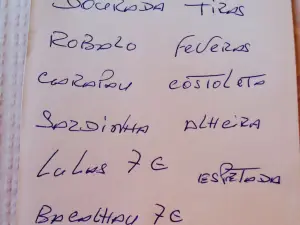 DOURADA TIRAS
ROBALO FEVERAS
CARAPAU COSTOLETA
SARDINHA ALHEIRA
LULAS 7 € ESPETADA
BACALHAU 7 €